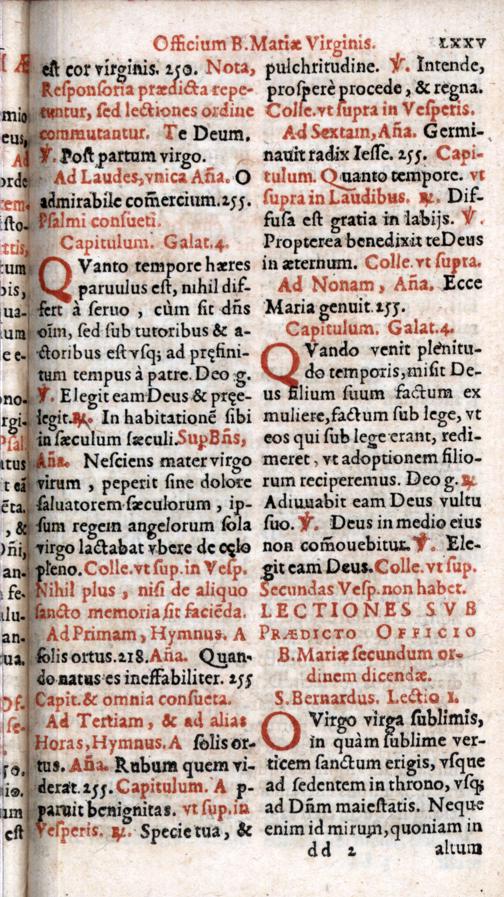 Officium B. Mariæ Virginis. LXXV
est cor virginis. 250. Nota,
Responsoria prædicta repe-
tuntur, sed lectiones ordine
commutantur. Te Deum.
℣. Post partum virgo.
Ad Laudes, vnica Aña. O
admirabile com̃ercium. 255.
Psalmi consueti.
Capitulum. Galat. 4.
QVanto tempore hæres
paruulus est, nihil dif-
fert à seruo, cùm sit dñs
oĩm, sed sub tutoribus & a-
ctoribus est vsq; ad pręfini-
tum tempus à patre. Deo g.
℣. Elegit eam Deus & pręe-
legit. ℟. In habitationẽ sibi
in sæculum sæculi. Sup Bñs,
Aña. Nesciens mater virgo
virum, peperit sine dolore
saluatorem sæculorum, ip-
sum regem angelorum sola
virgo lactabat vbere de cęlo
pleno. Colle. vt sup. in Vesp.
Nihil plus, nisi de aliquo
sancto memoria sit faciẽda.
Ad Primam, Hymnus. A
solis ortus. 218. Aña. Quan-
do natus es ineffabiliter. 255
Capit. & omnia consueta.
Ad Tertiam, & ad alias
Horas, Hymnus. A solis or-
tus. Aña. Rubum quem vi-
derat. 255. Capitulum. A p-
paruit benignitas. vt sup. in
Vesperis. ℟. Specie tua, &
pulchritudine. ℣. Intende,
prosperè procede, & regna.
Colle. vt supra in Vesperis.
Ad Sextam, Aña. Germi-
nauit radix Iesse. 255. Capi-
tulum. Quanto tempore. vt
supra in Laudibus. ℟. Dif-
fusa est gratia in labijs. ℣.
Propterea benedixit te Deus
in æternum. Colle. vt supra.
Ad Nonam, Aña. Ecce
Maria genuit. 255.
Capitulum. Galat. 4.
QVando venit plenitu-
do temporis, misit De-
us filium suum factum ex
muliere, factum sub lege, vt
eos qui sub lege erant, redi-
meret, vt adoptionem filio-
rum reciperemus. Deo g. ℟.
Adiuuabit eam Deus vultu
suo. ℣. Deus in medio eius
non com̃ouebitur. ℣. Ele-
git eam Deus. Colle. vt sup.
Secundas Vesp. non habet.
LECTIONES SVB
PRÆDICTO OFFICIO
B. Mariæ secundum or-
dinem dicendæ.
S. Bernardus. Lectio I.
O Virgo virga sublimis,
in quàm sublime ver-
ticem sanctum erigis, vsque
ad sedentem in throno, vsq;
ad Dñm maiestatis. Neque
enim id mirum, quoniam in
dd 2 altum